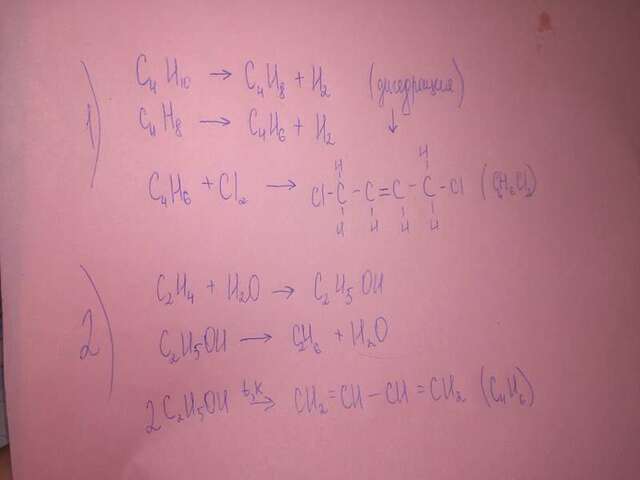 1)
C₄H₁₀ → C₄H₈ + H₂ (дигедрация)
C₄H₈ → C₄H₆ + H₂ ↓
H H
C₄H₆ + Cl₂ → Cl-C-C=C-C-Cl (C₄H₆Cl₂)
H H H H
2)
C₂H₄ + H₂O → C₂H₅OH
C₂H₅OH → C₂H₆ + H₂O
2C₂H₅OH t,K→ CH₂=CH-CH=CH₂ (C₄H₆)